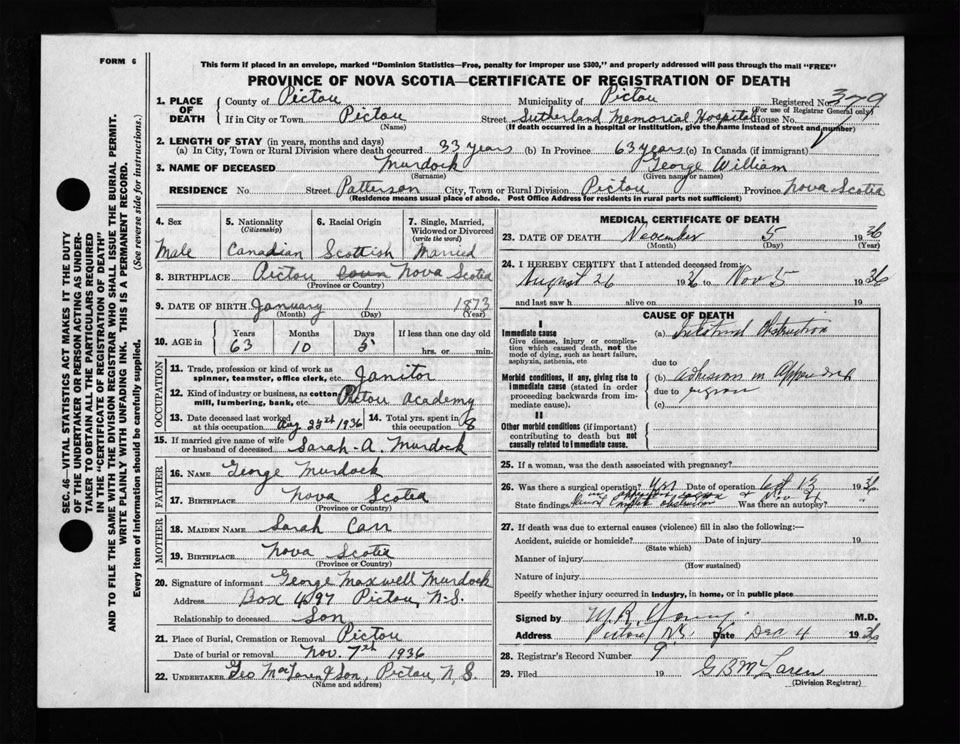 FORM 6
This form if placed in an envelope, marked "Dominion Statistics—Free, penalty for improper use $300," and properly addressed will pass through the mail "FREE"
PROVINCE OF NOVA SCOTIA—CERTIFICATE OF REGISTRATION OF DEATH
SEC. 46—VITAL STATISTICS ACT MAKES IT THE DUTY
OF THE UNDERTAKER OR PERSON ACTING AS UNDER-
TAKER TO OBTAIN ALL THE PARTICULARS REQUIRED
IN THE "CERTIFICATE OF REGISTRATION OF DEATH"
AND TO FILE THE SAME WITH THE DIVISION REGISTRAR WHO SHALL ISSUE THE BURIAL PERMIT.
WRITE PLAINLY WITH UNFADING INK. THIS IS A PERMANENT RECORD.
Every item of information should be carefully supplied. (See reverse side for instructions.)
1. PLACE OF DEATH
County of Pictou Municipality of Pictou Registered No. 379
(For use of Registrar General only)
If in City or Town Pictou Street Sutherland Memorial Hospital House No.
(Name) (If death occurred in a hospital or institution, give the name instead of street and number)
2. LENGTH OF STAY (in years, months and days)
(a) In City, Town or Rural Division where death occurred 33 years (b) In Province 63 years (c) In Canada (if immigrant)
3. NAME OF DECEASED Murdock George William
(Surname) (Given name or names)
RESIDENCE No. Street Patterson City, Town or Rural Division Pictou Province Nova Scotia
(Residence means usual place of abode. Post Office Address for residents in rural parts not sufficient)
4. Sex
Male
5. Nationality
(Citizenship)
Canadian
6. Racial Origin
Scottish
7. Single, Married, Widowed or Divorced
(write the word)
Married
8. BIRTHPLACE Pictou Nova Scotia
(Province or Country)
9. DATE OF BIRTH January 1 1873
(Month) (Day) (Year)
10. AGE in
Years Months Days If less than one day old
63 10 5 hrs. or min.
OCCUPATION
11. Trade, profession or kind of work as
spinner, teamster, office clerk, etc. Janitor
12. Kind of industry or business, as cotton
mill, lumbering, bank, etc. Pictou Academy
13. Date deceased last worked
at this occupation Aug 25th 1936
14. Total yrs. spent in
this occupation 8
15. If married give name of wife
or husband of deceased Sarah-A. Murdock
FATHER
16. NAME George Murdock
17. BIRTHPLACE Nova Scotia
(Province or Country)
MOTHER
18. MAIDEN NAME Sarah Carr
19. BIRTHPLACE Nova Scotia
(Province or Country)
20. Signature of informant George Maxwell Murdock
Address Box Pictou, N.S.
Relationship to deceased Son
21. Place of Burial, Cremation or Removal Pictou
Date of burial or removal Nov. 7th 1936
22. UNDERTAKER Geo MacLaren & Son, Pictou, N.S.
(Name and address)
MEDICAL CERTIFICATE OF DEATH
23. DATE OF DEATH November 5 1936
(Month) (Day) (Year)
24. I HEREBY CERTIFY that I attended deceased from:
August 26 1936 to Nov 5 1936
and last saw h alive on 19
CAUSE OF DEATH
I
Immediate cause
Give disease, injury or complica-
tion which caused death, not the
mode of dying, such as heart failure,
asphyxia, asthenia, etc
(a) Intestinal obstruction
due to
Morbid conditions, if any, giving rise to
immediate cause (stated in order
proceeding backwards from im-
mediate cause).
(b) adhesions in
due to region
(c)
II
Other morbid conditions (if important)
contributing to death but not
causally related to immediate cause.
25. If a woman, was the death associated with pregnancy?
26. Was there a surgical operation? Yes Date of operation 13 1936
State findings Was there an autopsy?
27. If death was due to external causes (violence) fill in also the following:—
Accident, suicide or homicide? Date of injury 19
(State which)
Manner of injury
(How sustained)
Nature of injury
Specify whether injury occurred in Industry, in home, or in public place
Signed by M.D.
Address Pictou, N.S. Date Dec 4 1936
28. Registrar's Record Number 9
29. Filed 19 G B McLaren
(Division Registrar)